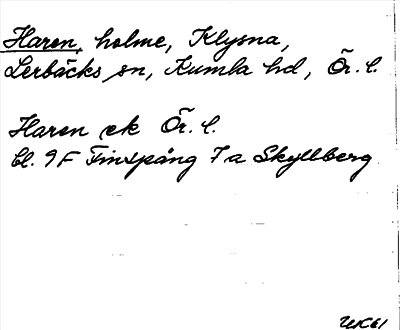 Haren, holme, Klysna,
Lerbäcks sn, Kumla hd, Ör. l.
Haren ek Ör. l.
bl. 9F Finspång 7a Skyllberg
WK61